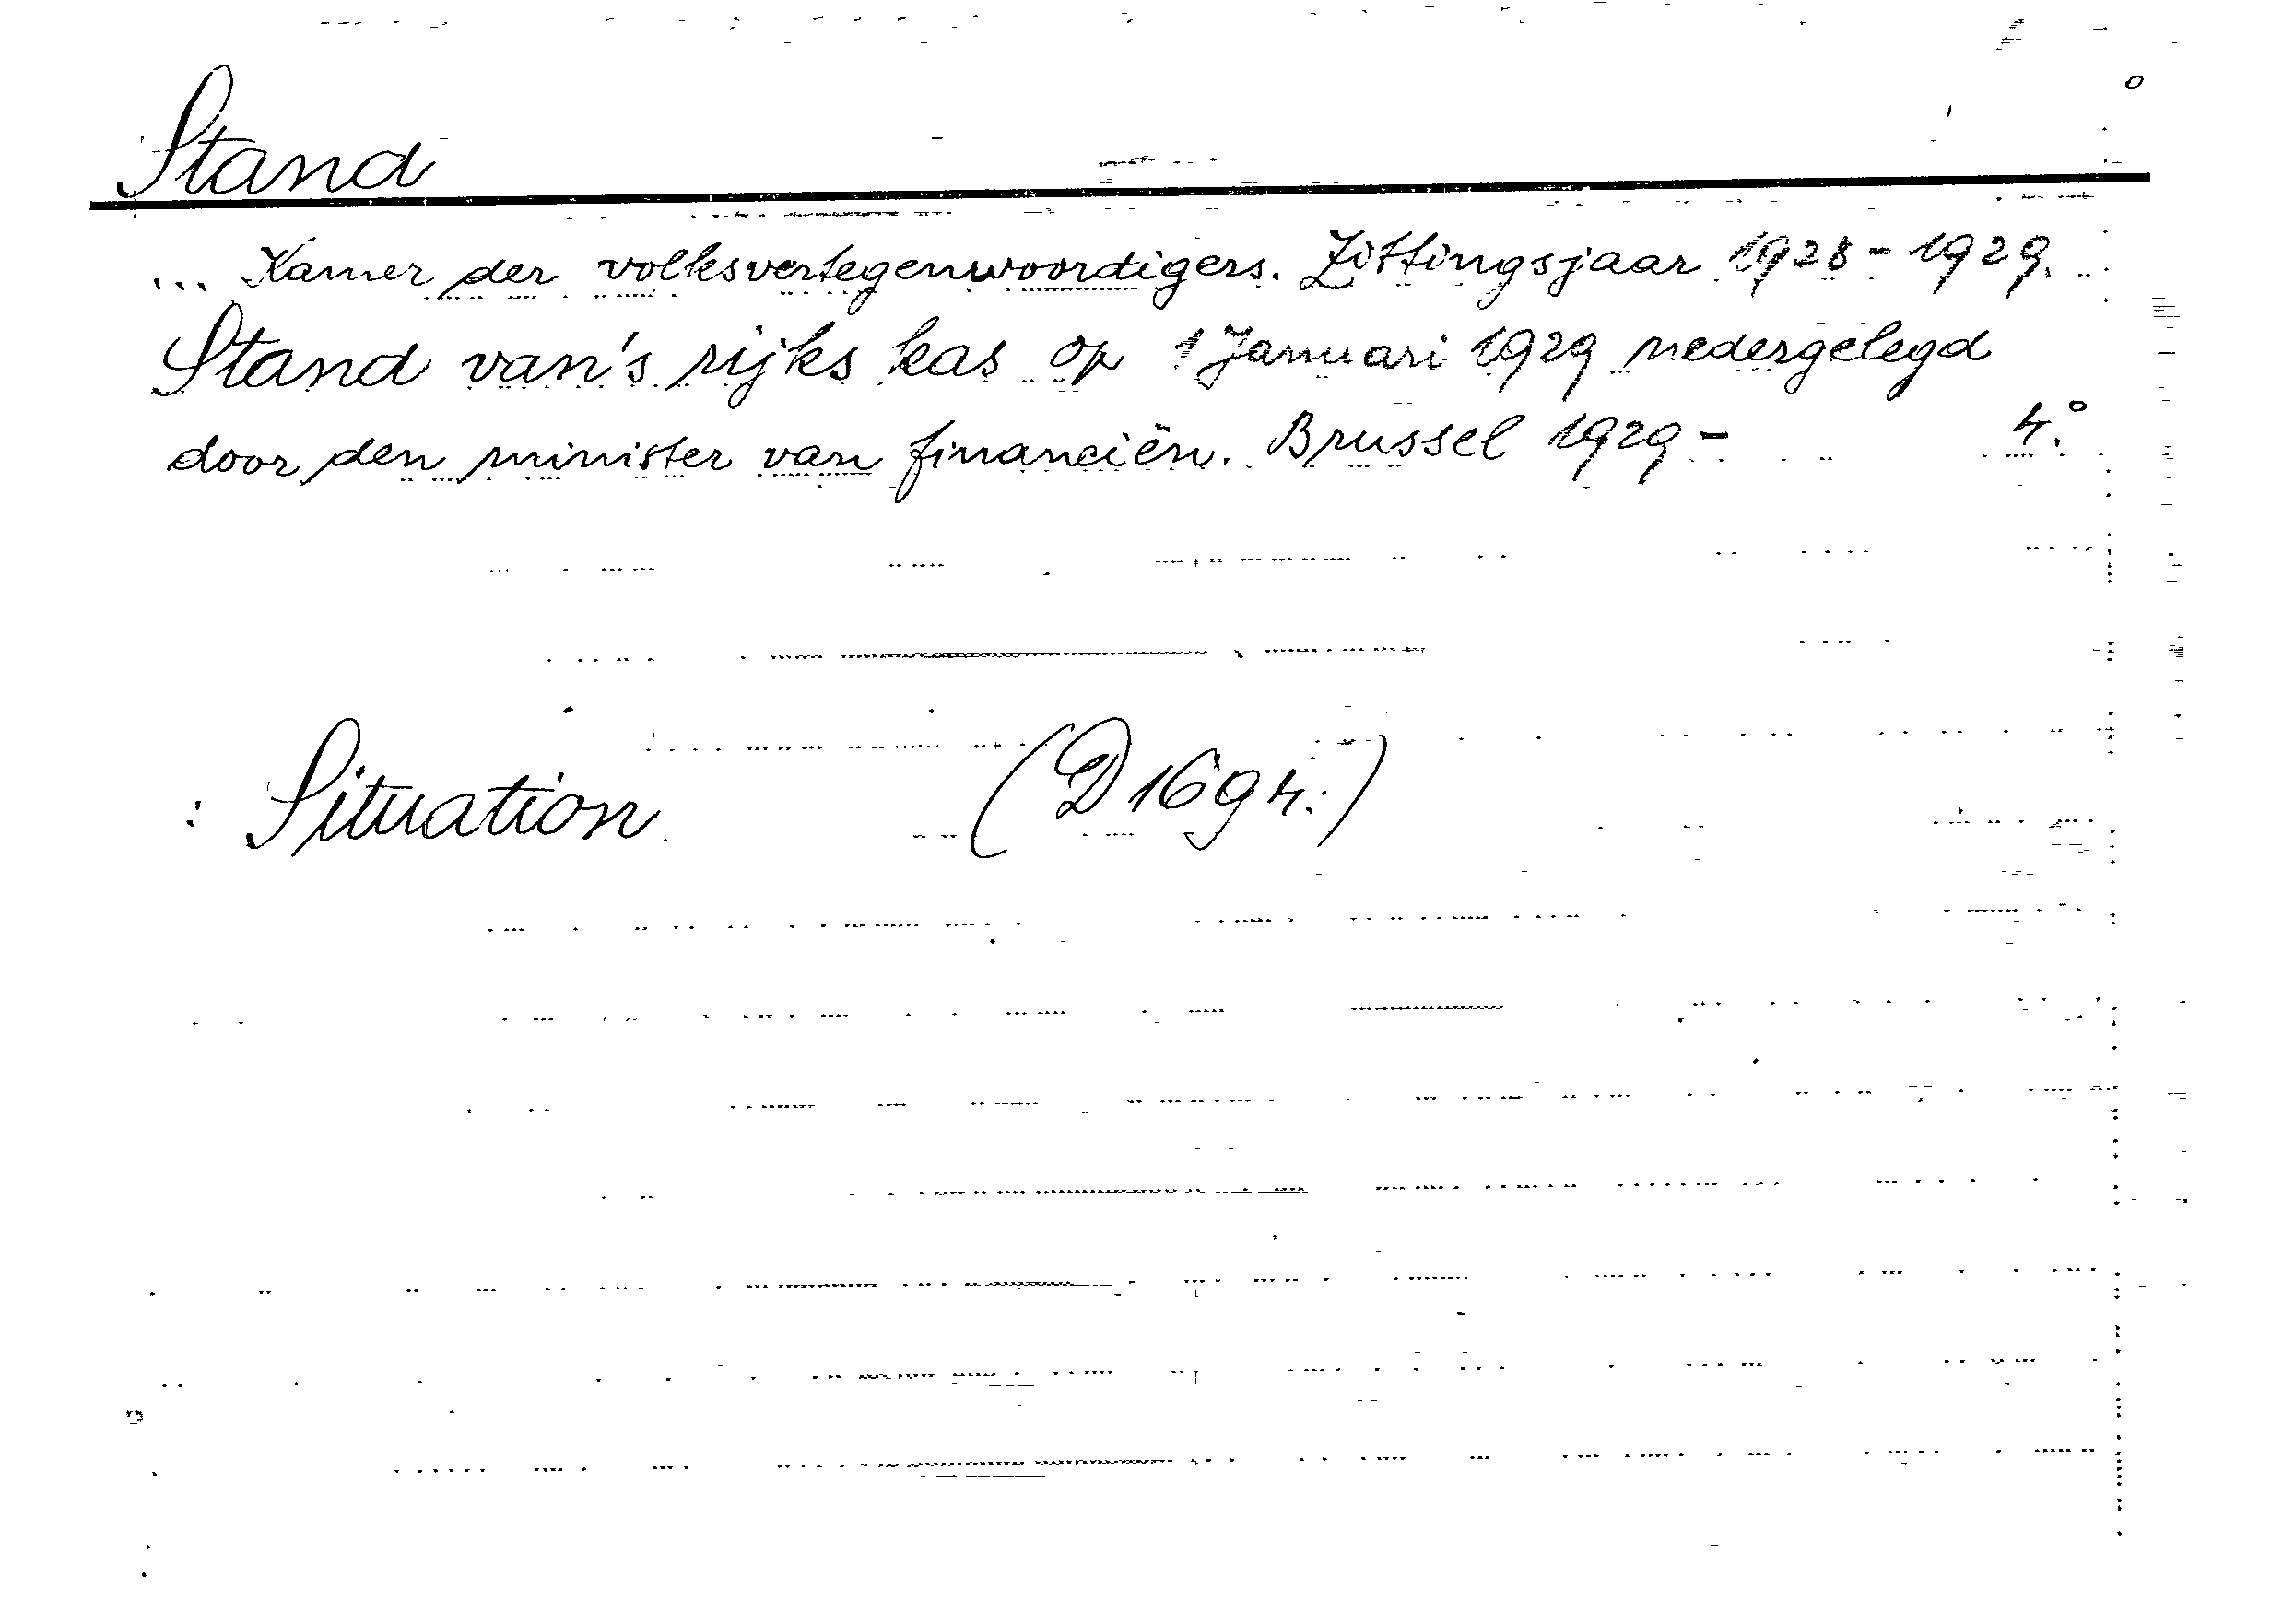 Stand
... Kamer der volksvertegenwoordigers. Zittingsjaar 1928-1929.
Stand van's rijks kas op 1 Januari 1929 nedergelegd
door den minister van financiën. Brussel 1929- 4.°
: Situation (D 1694.)